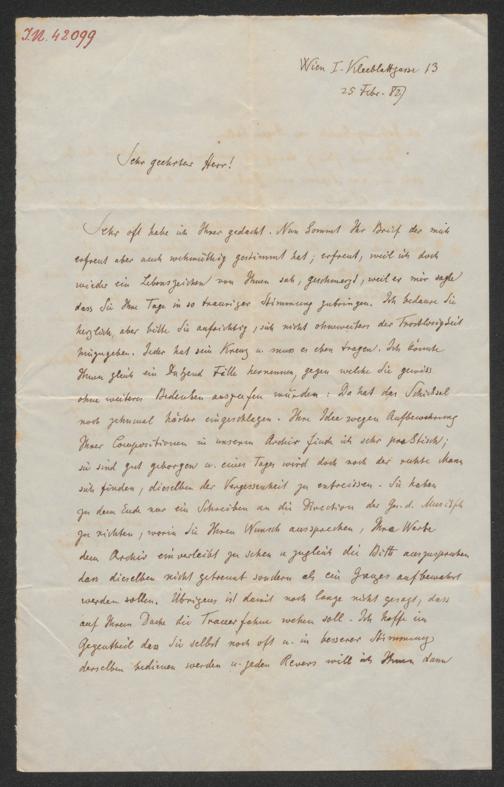 I.N. 42099
Wien I. Kleeblattgasse 13
25 Febr. 87
Sehr geehrter Herr!
Sehr oft habe ich Ihrer gedacht. Nun kommt Ihr Brief der mich
erfreut aber auch wehmüthig gestimmt hat; erfreut, weil ich doch
wieder ein Lebenszeichen von Ihnen sah, geschmerzt, weil er mir sagte
dass Sie Ihre Tage in so trauriger Stimmung zubringen. Ich bedaure Sie
herzlich, aber bitte Sie aufrichtig, sich nicht ohneweiters der Trostlosigkeit
hinzugeben. Jeder hat sein Kreuz u. muss es eben tragen. Ich könnte
Ihnen gleich ein Dutzend Fälle hernennen, gegen welche Sie gewiss
ohne weiteres Bedenken ausrufen würden: Da hat das Schicksal
noch zehnmal härter eingeschlagen. Ihre Idee wegen Aufbewahrung
Ihrer Compositionen in unserem Archiv finde ich sehr praktisch;
sie sind gut geborgen u. eines Tages wird doch noch der rechte Mann
sich finden, dieselben der Vergessenheit zu entreissen. Sie haben
zu dem Ende nur ein Schreiben an die Direction der Ges. d. Musikfr.
zu richten, worin Sie Ihren Wunsch aussprechen, Ihre Werke
dem Archiv einverleibt zu sehen u. zugleich die Bitte auszusprechen
dass dieselben nicht getrennt sondern als ein Ganzes aufbewahrt
werden sollen. Übrigens ist damit noch lange nicht gesagt, dass
auf Ihrem Dache die Trauerfahne wehen soll. Ich hoffe im
Gegentheil dass Sie selbst noch oft u. in besserer Stimmung
derselben bedienen werden u. jeden Revers will ich Ihnen dann